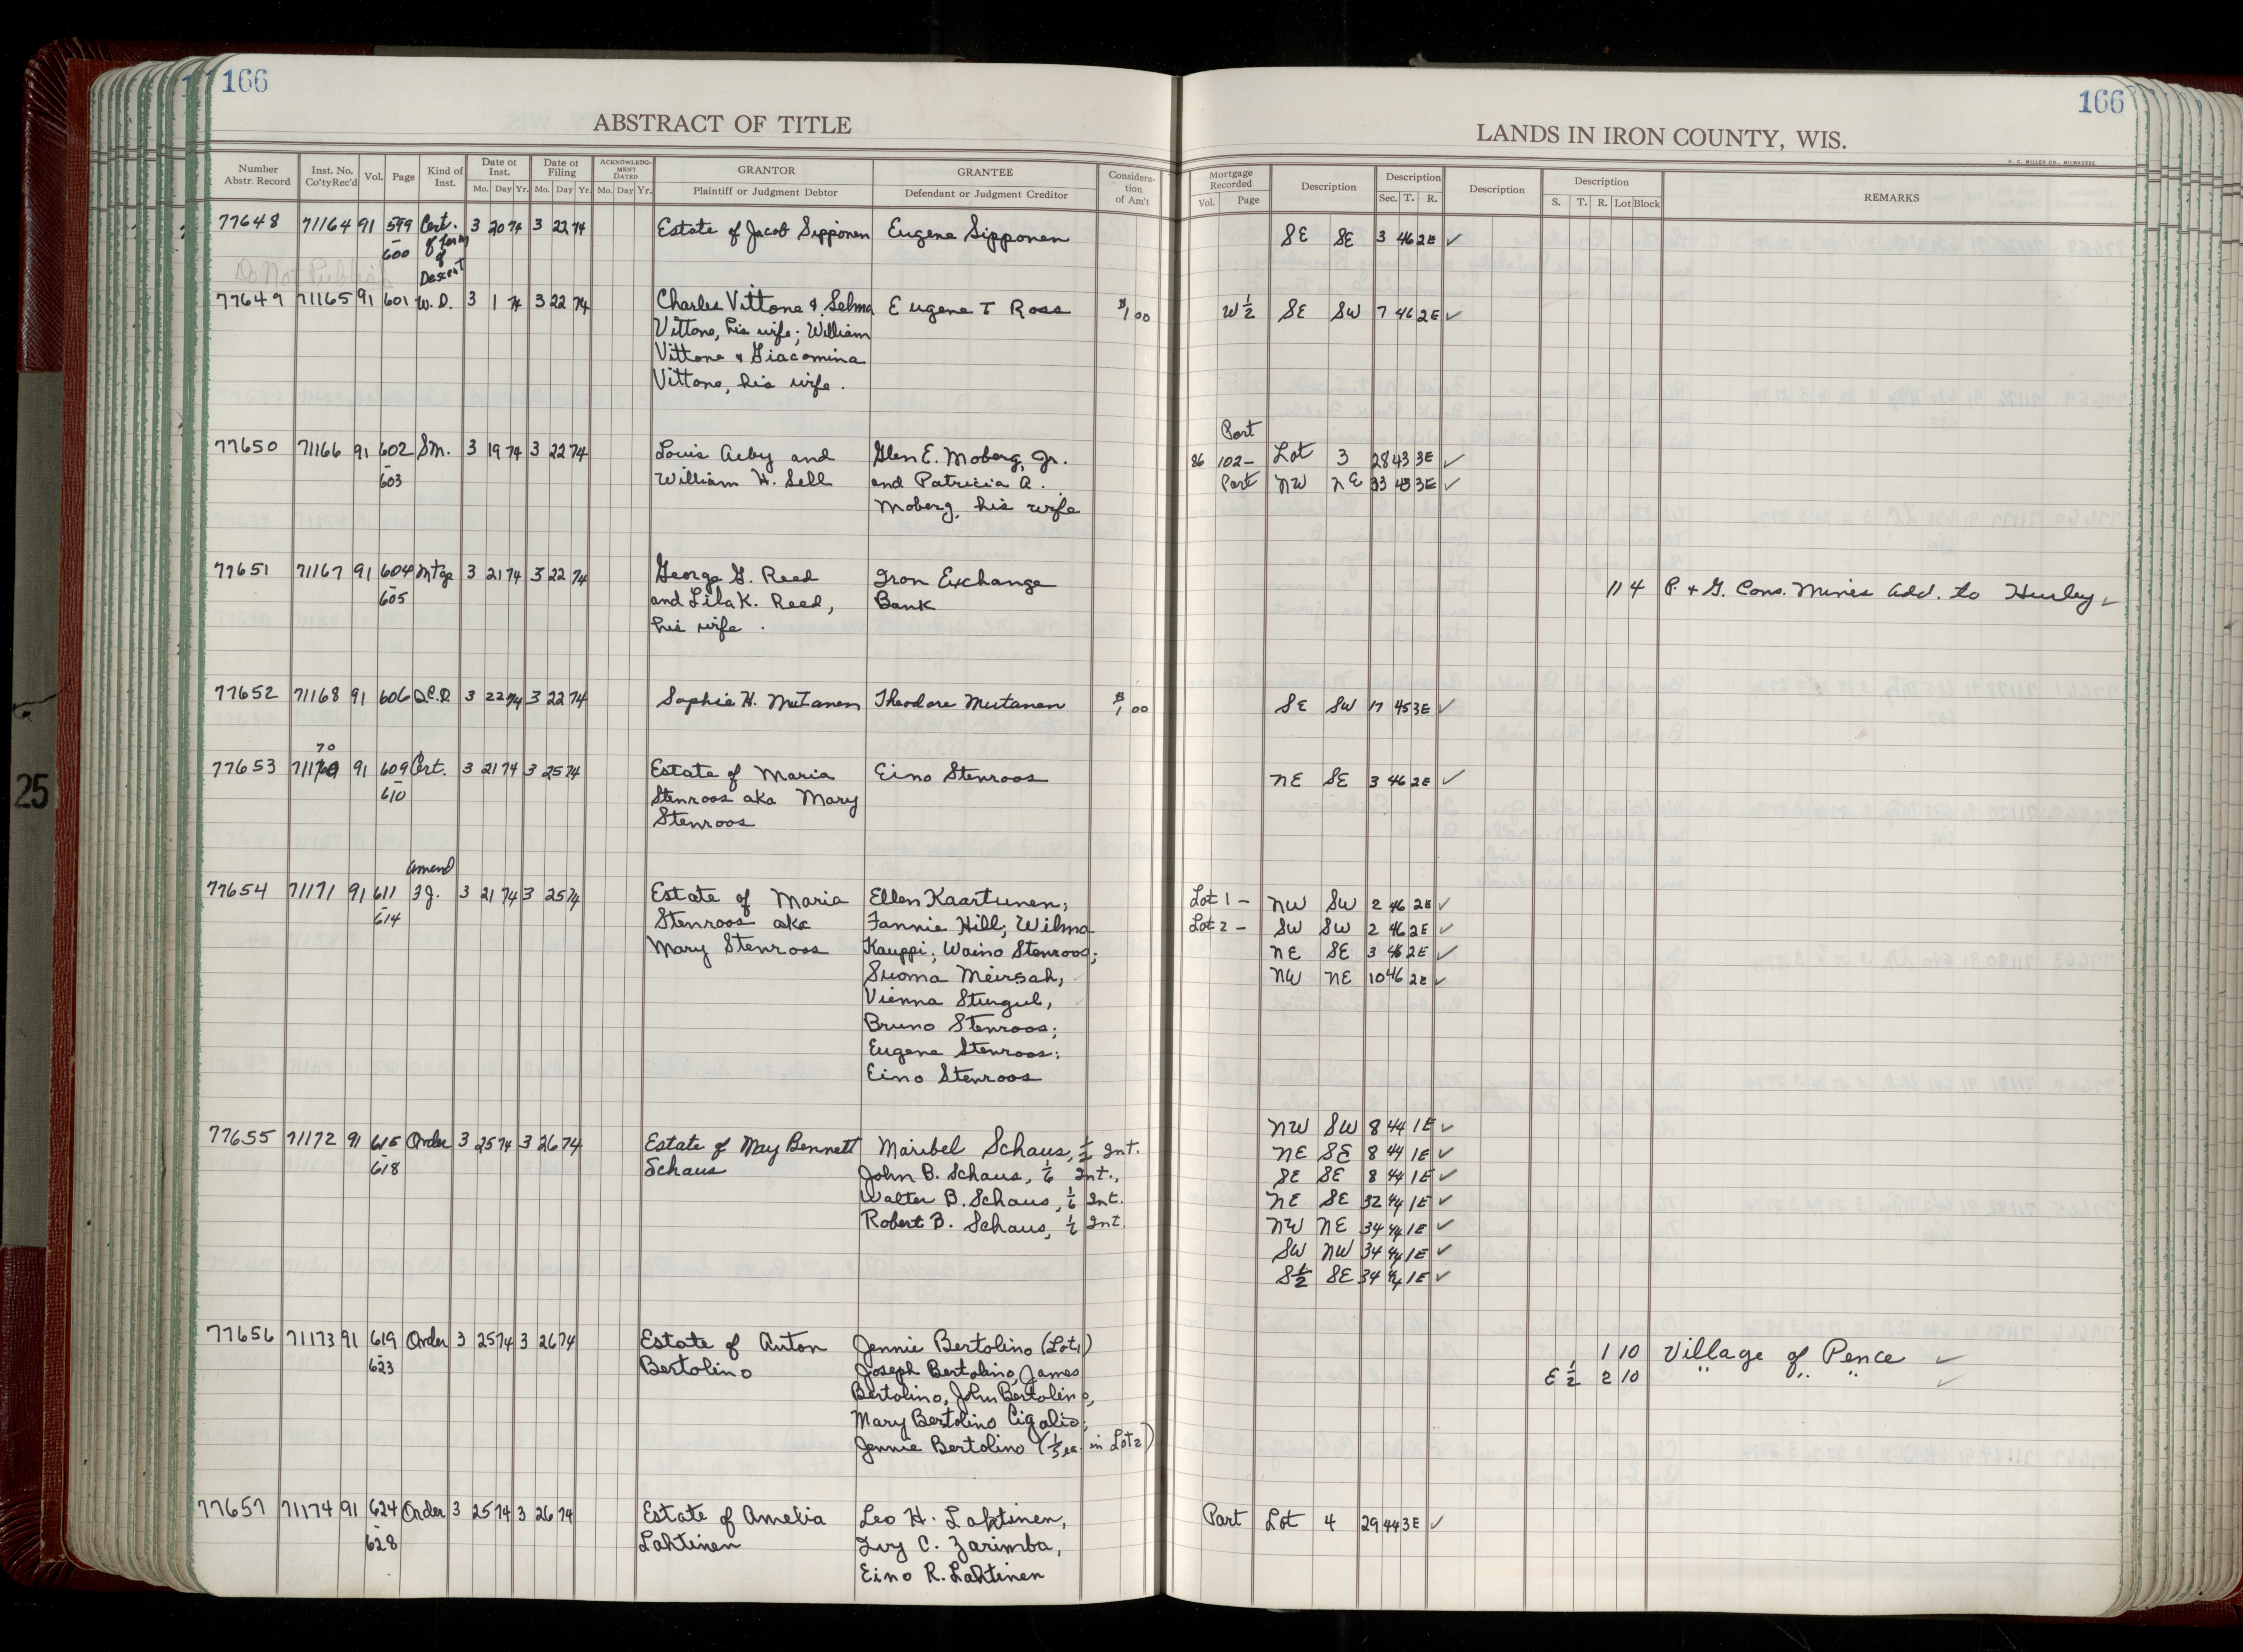 166
ABSTRACT OF TITLE
Number Abstr. Record
Inst. No. Co'ty Rec'd
Vol.
Page
Kind of Inst.
Date of Inst.
Mo. Day Yr.
Date of Filing
Mo. Day Yr.
ACKNOWLEDG-MENT DATED
Mo. Day Yr.
GRANTOR
Plaintiff or Judgment Debtor
GRANTEE
Defendant or Judgment Creditor
Considera-tion of Am't
77648 71164 91 599 Cert. 3 20 74 3 22 74 Estate of Jacob Sipponen Eugene Sipponen
- 600 of
of
Descent
Do Not Publish
77649 71165 91 601 W.D. 3 1 74 3 22 74 Charles Vittone & Selma Eugene T Ross $1.00
Vittone, his wife; William
Vittone & Giacomina
Vittone, his wife.
77650 71166 91 602 Sm. 3 19 74 3 22 74 Louis Arby and Glen E. Moberg, Jr.
- 603 William H. Sell and Patricia A.
Moberg, his wife
77651 71167 91 604 Mtge 3 21 74 3 22 74 George G. Reed Iron Exchange
- 605 and Lila K. Reed, Bank
his wife.
77652 71168 91 606 Q.C.D. 3 22 74 3 22 74 Sophie H. Mutanen Theodore Mutanen $1.00
70
77653 71169 91 609 Cert. 3 21 74 3 25 74 Estate of Maria Eino Stenroos
- 610 Stenroos aka Mary
Stenroos
Amend
77654 71171 91 611 F.J. 3 21 74 3 25 74 Estate of Maria Ellen Kaartunen;
- 614 Stenroos aka Fannie Hill; Wilma
Mary Stenroos Kauppi; Waino Stenroos;
Suoma Meirsah;
Vienna Sturgul,
Bruno Stenroos;
Eugene Stenroos;
Eino Stenroos
77655 71172 91 615 Order 3 25 74 3 26 74 Estate of May Bennett Maribel Schaus, 1/2 Int.
- 618 Schaus John B. Schaus, 1/6 Int.,
Walter B. Schaus, 1/6 Int.
Robert B. Schaus, Int.
77656 71173 91 619 Order 3 25 74 3 26 74 Estate of Anton Jennie Bertolino (Lot 1)
- 623 Bertolino Joseph Bertolino, James
Bertolino, John Bertolino,
Mary Bertolino Cigalio;
Jennie Bertolino (1/5 ea. in Lot 2)
77657 71174 91 624 Order 3 25 74 3 26 74 Estate of Amelia Leo H. Lahtinen,
- 628 Lahtinen Ivy C. Zarimba,
Eino R. Lahtinen
166
LANDS IN IRON COUNTY, WIS.
H. C. MILLER CO., MILWAUKEE
Mortgage Recorded
Vol. Page
Description
Description
Sec. T. R.
Description
Description
S. T. R. Lot Block
REMARKS
SE SE 3 46 2E ✓
W 1/2 SE SW 7 46 2E ✓
Part
86 102- Lot 3 28 43 3E ✓
Part NW NE 33 43 3E ✓
11 4 P. & G. Cons. Mines Add. to Hurley ✓
SE SW 17 45 3E ✓
NE SE 3 46 2E ✓
Lot 1 - NW SW 2 46 2E ✓
Lot 2 - SW SW 2 46 2E ✓
NE SE 3 46 2E ✓
NW NE 10 46 2E ✓
NW SW 8 44 1E ✓
NE SE 8 44 1E ✓
SE SE 8 44 1E ✓
NE SE 32 44 1E ✓
NW NE 34 44 1E ✓
SW NW 34 44 1E ✓
S 1/2 SE 34 44 1E ✓
1 10 Village of Pence ✓
E 1/2 2 10 " " " ✓
Part Lot 4 29 44 3E ✓
25